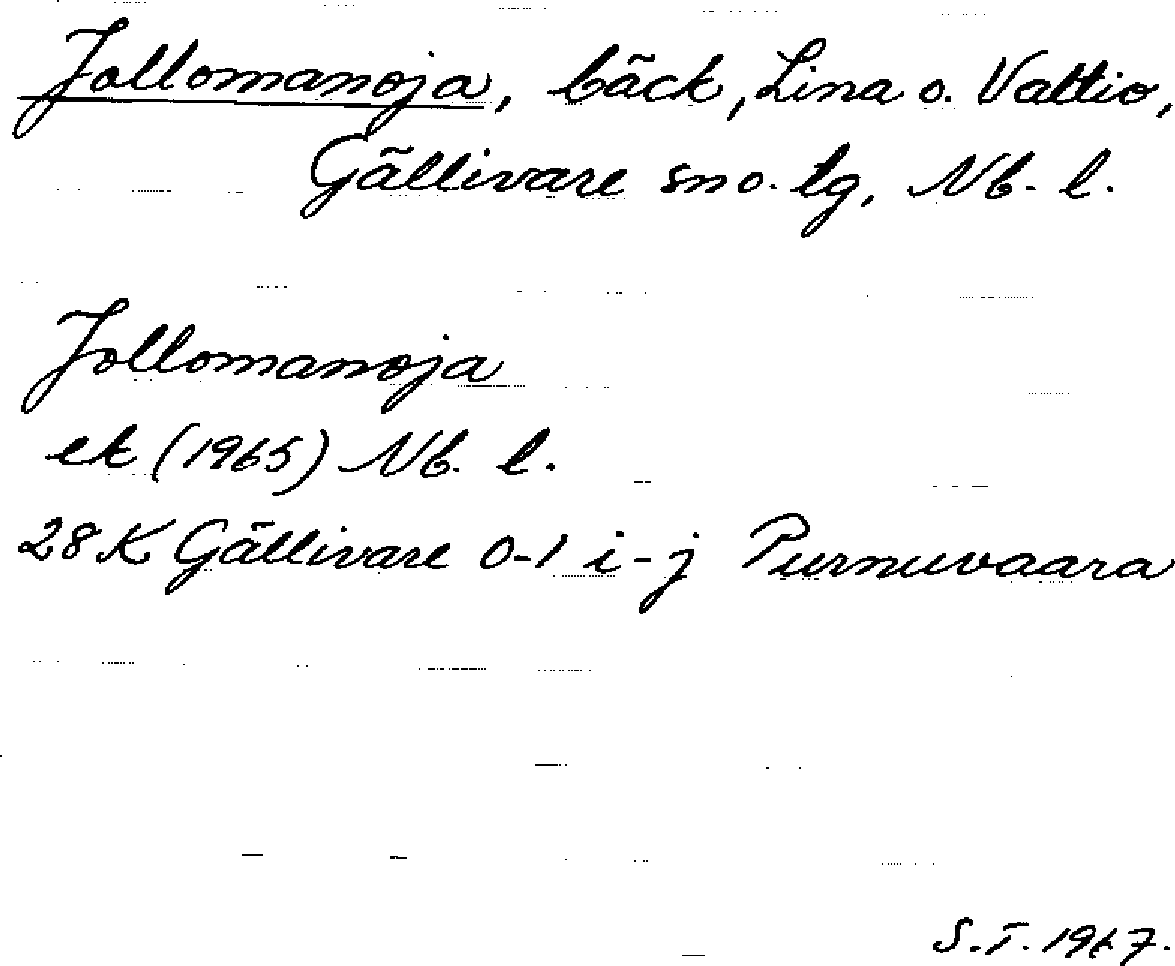 Jollomanoja, bäck, Lina o. Vattio,
Gällivare sn o. tg, Nb. l.
Jollomanoja
ek (1965) Nb. l.
28K Gällivare 0-1 i-j Purnuvaara
S.T. 1967.